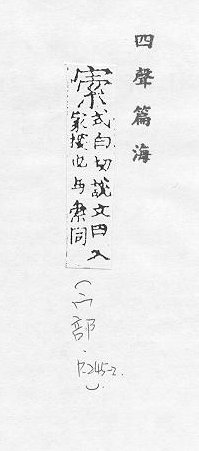 四聲篇海
𡩡式白切說文曰入
家搜也与索同
(宀部,P.245-2.)